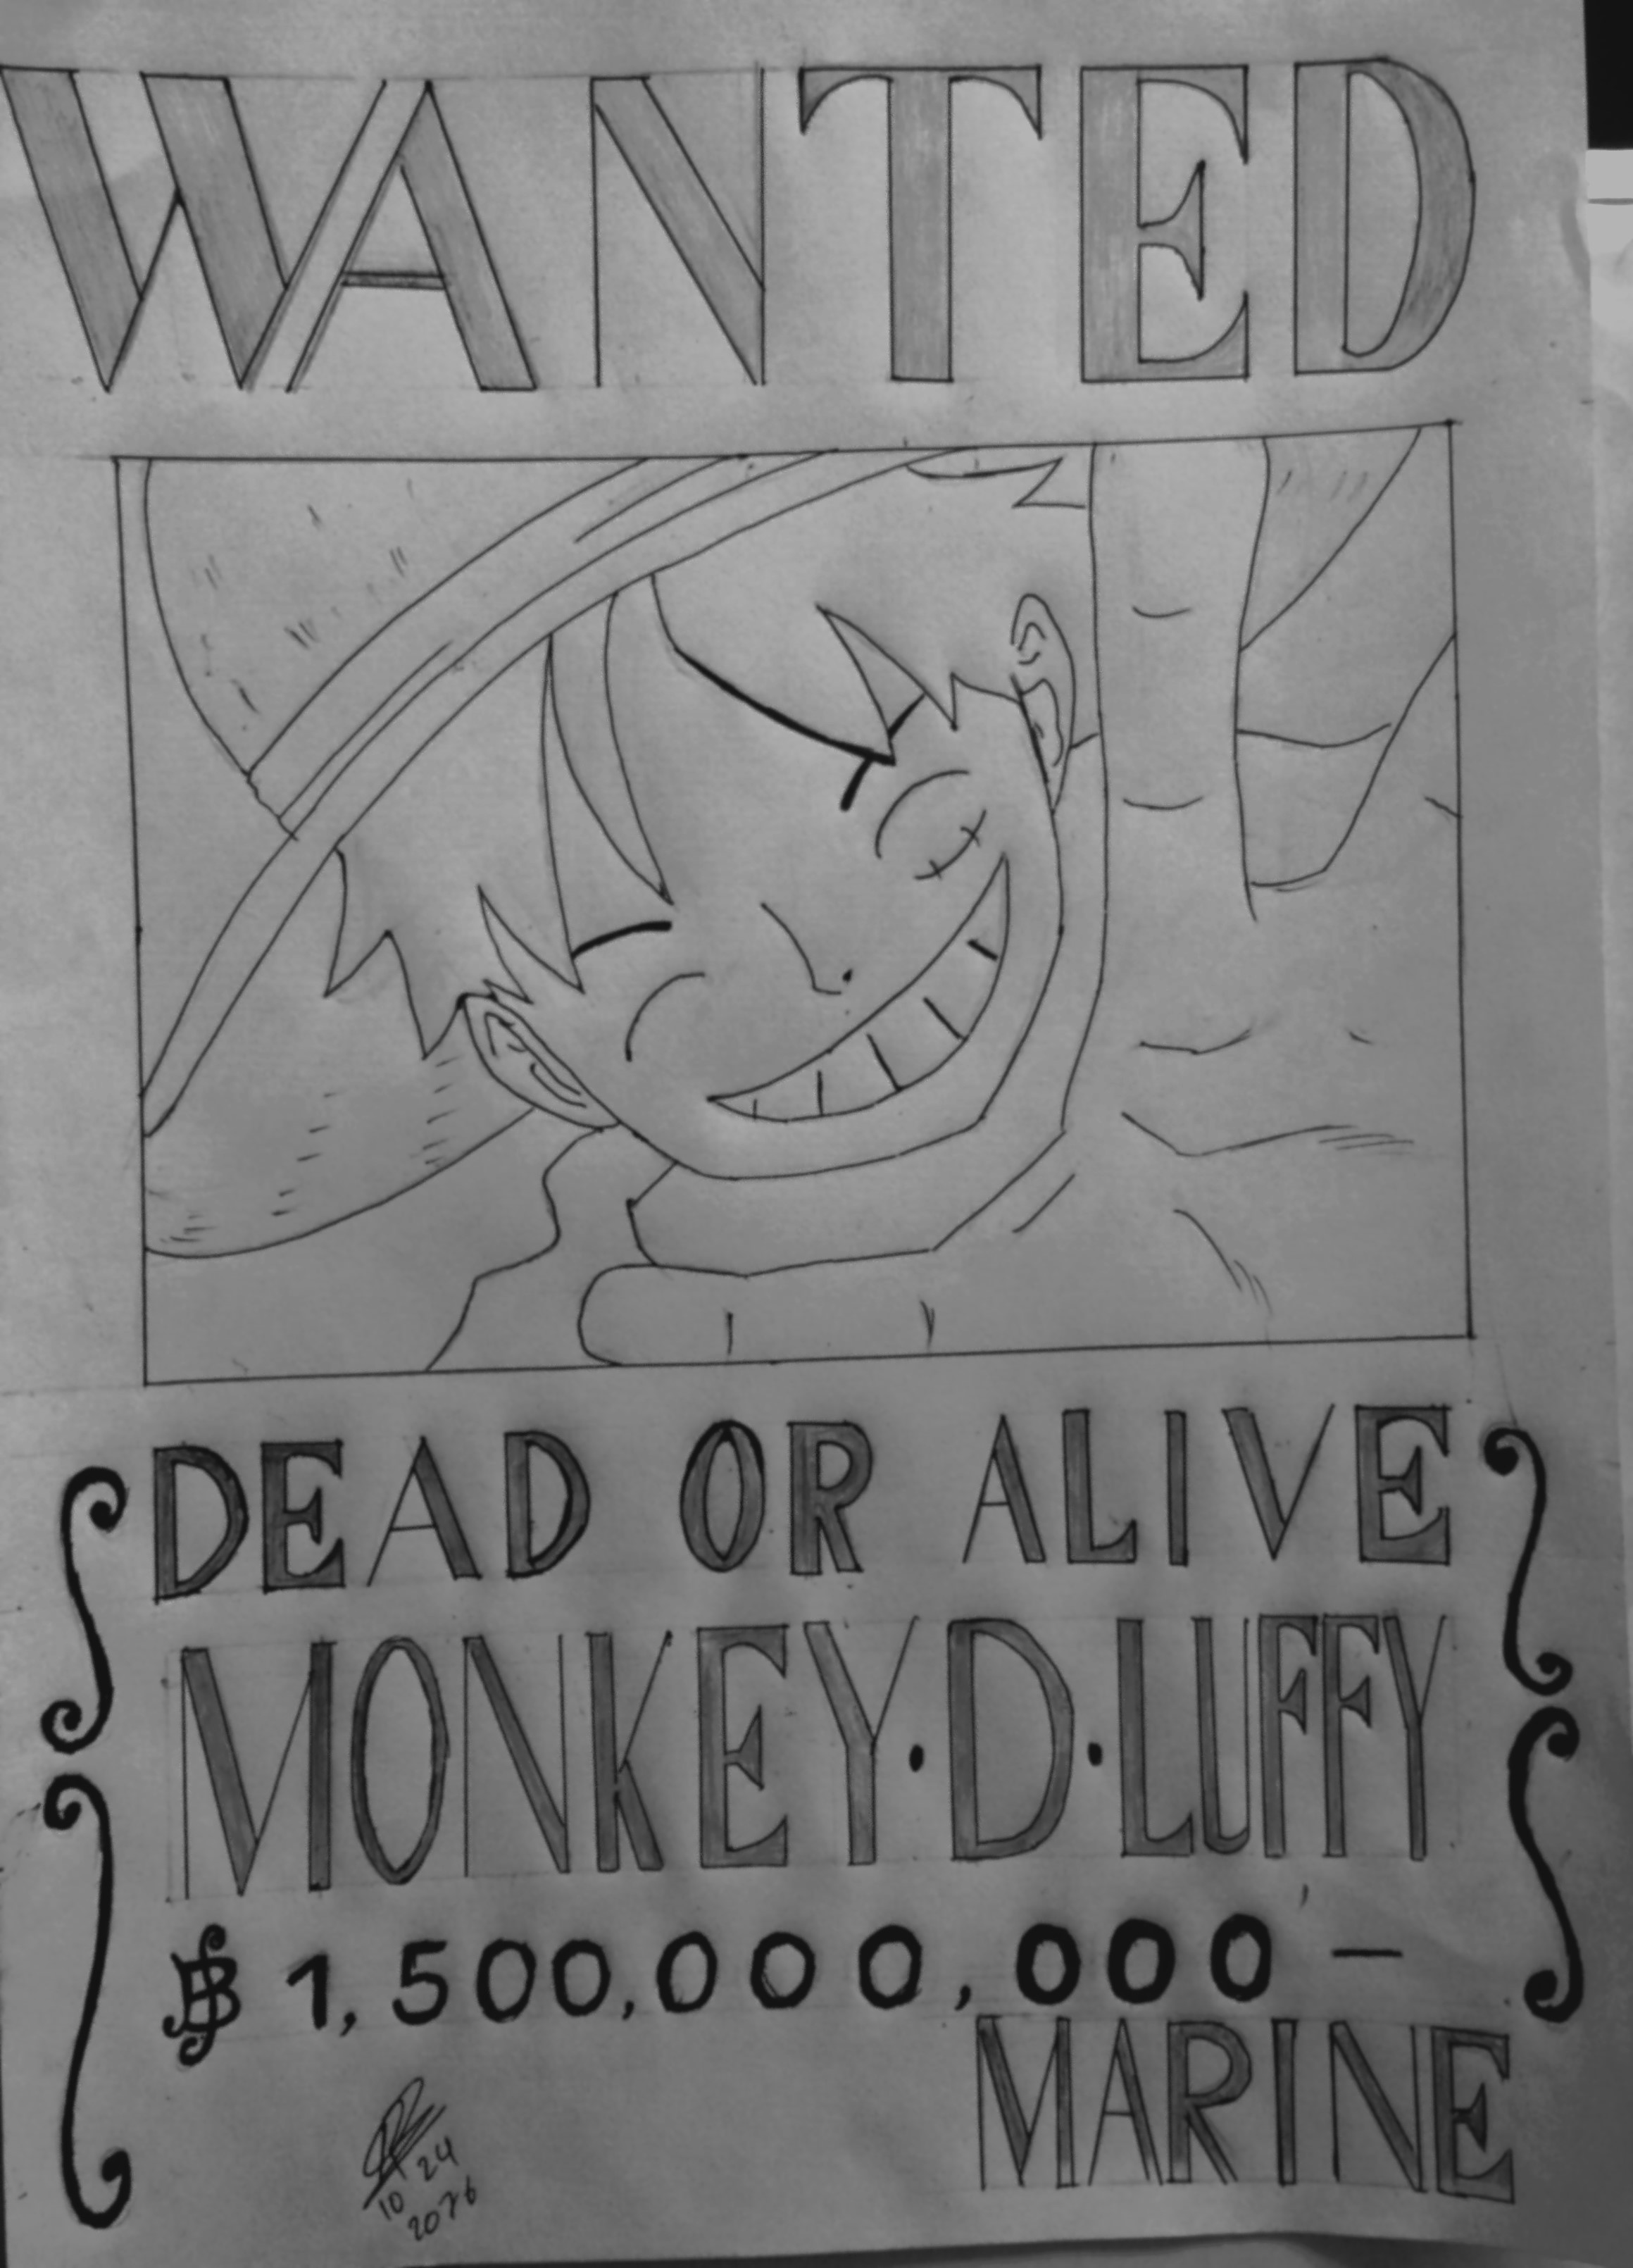 WANTED
DEAD OR ALIVE
MONKEY·D·LUFFY
฿ 1,500,000,000 —
MARINE
24
10